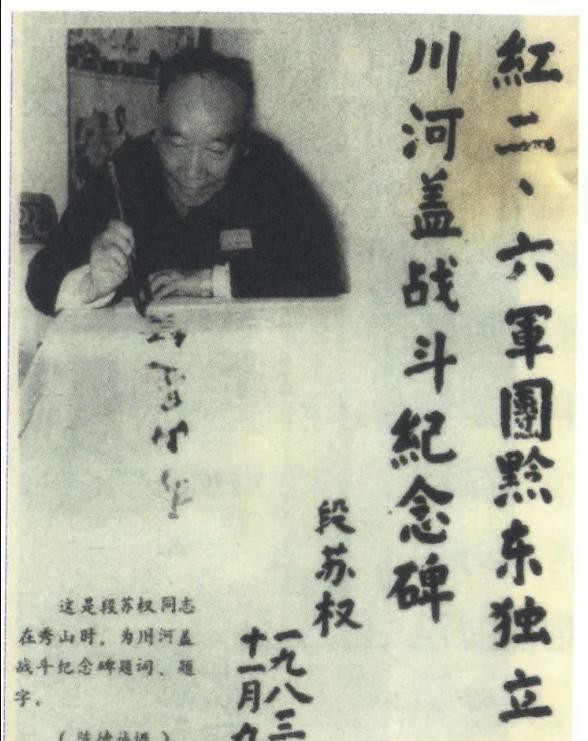 紅二、六軍團黔东独立
川河盖战斗紀念碑
段苏权
一九八三
十一月九
这是段苏权同志
在秀山时，为川河盖
战斗纪念碑题词、题
字。